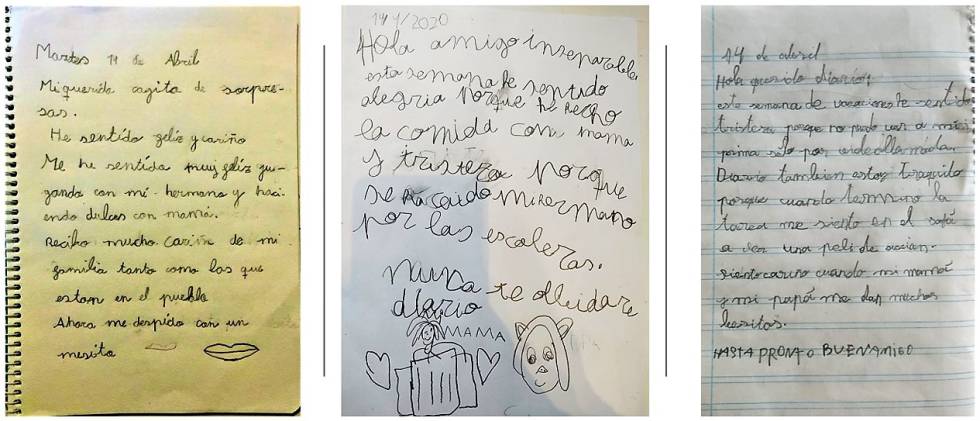 Martes 14 de Abril
Mi querida cagita de sorpre-
sas.
He sentido feliz y cariño
Me he sentido muy feliz gu-
gando con mi hermano y haci-
endo dulces con mamá.
Recibo mucho cariño de mi
familia tanto como los que
estan en el pueblo
Ahora me despido con un
mesito
14/4/2020
Hola amigo inseparable
esta semana he sentido
alegria porque he hecho
la comida con mama
y tristeza porque
se ha caido mi hermano
por las escaleras.
nunca te olvidare
diario
MAMA
14 de abril
Hola querido diario:
esta semana de vacaciones he sentido
tristeza porque no puedo ver a mi
prima solo por videollamada.
Diario tambien estoy tranquilo
porque cuando termino la
tarea me siento en el sofá
a ver una peli de accion.
siento cariño cuando mi mamá
y mi papá me dan muchos
besitos.
HASTA PRONTO BUEN AMIGO